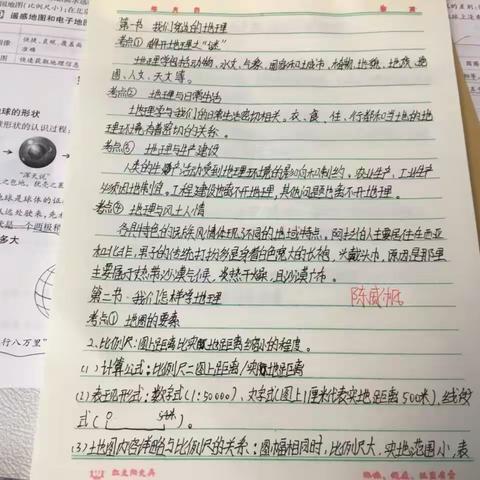 第一书 我们身边的地理
考点① 解开地理之“谜”
地理学包括动物、水文、气象、国家和城市、植物、地貌、地质、地
图、人文、天文等。
考点② 地理与日常生活
地理学与我们的日常生活密切相关。衣、食、住、行都和当地的地
理环境有着密切的关系。
考点③ 地理与生产建设
人类的生产活动受到地理环境的影响和制约，农业生产、工业生产
必须因地制宜，工程建设也离不开地理，其他问题也离不开地理。
考点④ 地理与风土人情
各具特色的民族风情体现不同的地域特点，阿拉伯人主要居住在西亚
和北非，男子的传统打扮多是穿着白色宽大的长袍，头戴头巾，原因是那里
主要属于热带沙漠气候，炎热干燥，且沙漠广布。
第二节 我们怎样学地理
陈威帆
考点① 地图的要素
2、比例尺：图上距离比实际地距离缩小的程度。
(1) 计算公式：比例尺=图上距离/实际地距离
(2) 表现形式：数字式(1:50000)、文字式(图上1厘米代表实地距离500米)、线段
式(0 500米)。
(3) 土地图内容详略与比例尺的关系：图幅相同时，比例尺大，实地范围小，表
遥感地图和电子地图
准确
图 快速获取地理信息
地球的形状
球形状的认识过程：
“浑天说”
多大
行八万里”